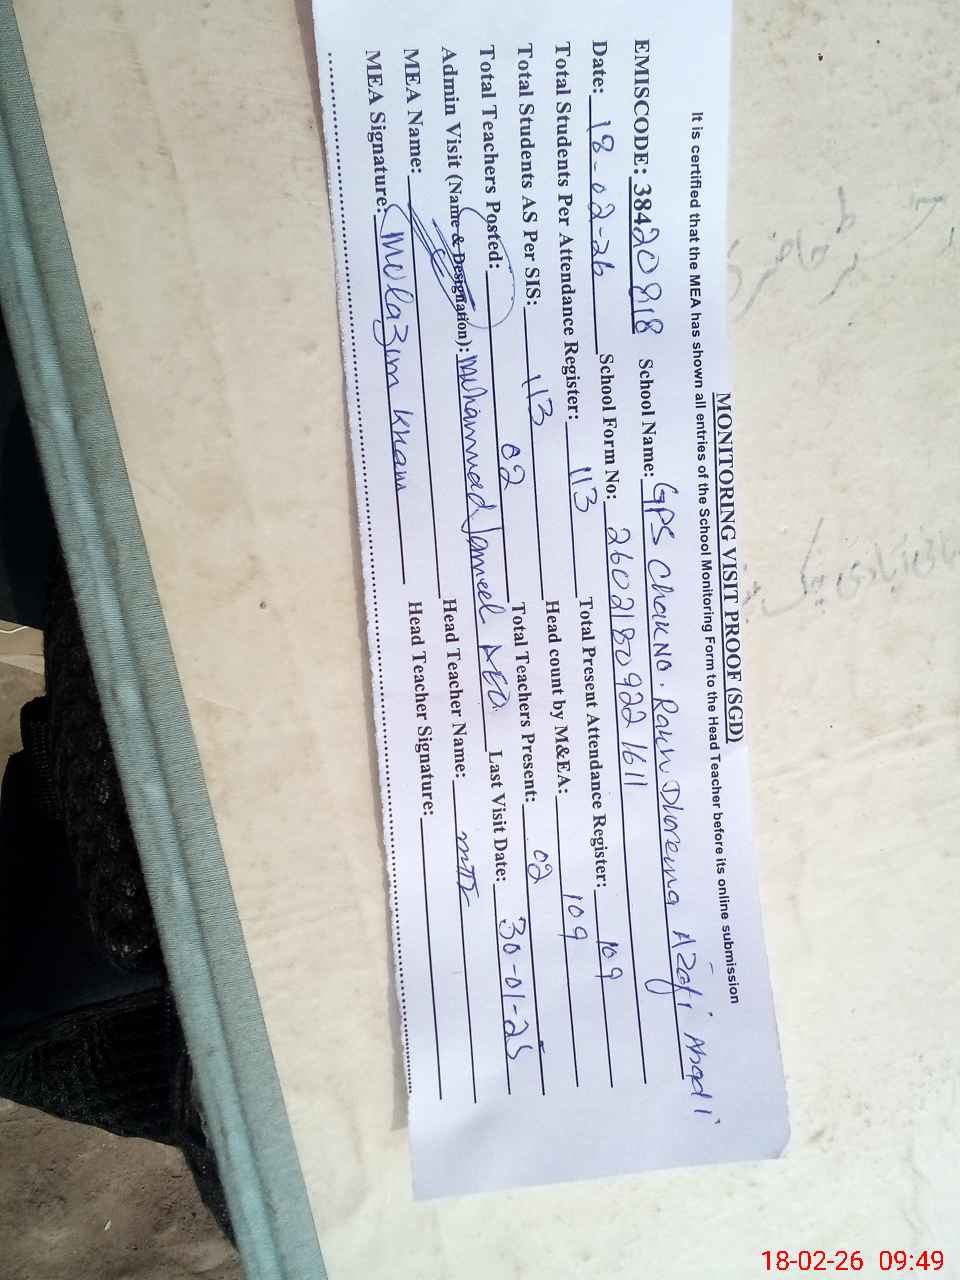 MONITORING VISIT PROOF (SGD)
It is certified that the MEA has shown all entries of the School Monitoring Form to the Head Teacher before its online submission
EMISCODE: 38420818 School Name: GPS Chak No. Rakh Dhorema Azafi Abadi
Date: 18-02-26 School Form No: 2602180922 1611
Total Students Per Attendance Register: 113 Total Present Attendance Register: 109
Total Students AS Per SIS: 113 Head count by M&EA: 109
Total Teachers Posted: 02 Total Teachers Present: 02
Admin Visit (Name & Designation): Muhammad Jameel AEO. Last Visit Date: 30-01-25
MEA Name: Head Teacher Name:
MEA Signature: Mulazim Khan Head Teacher Signature:
18-02-26 09:49